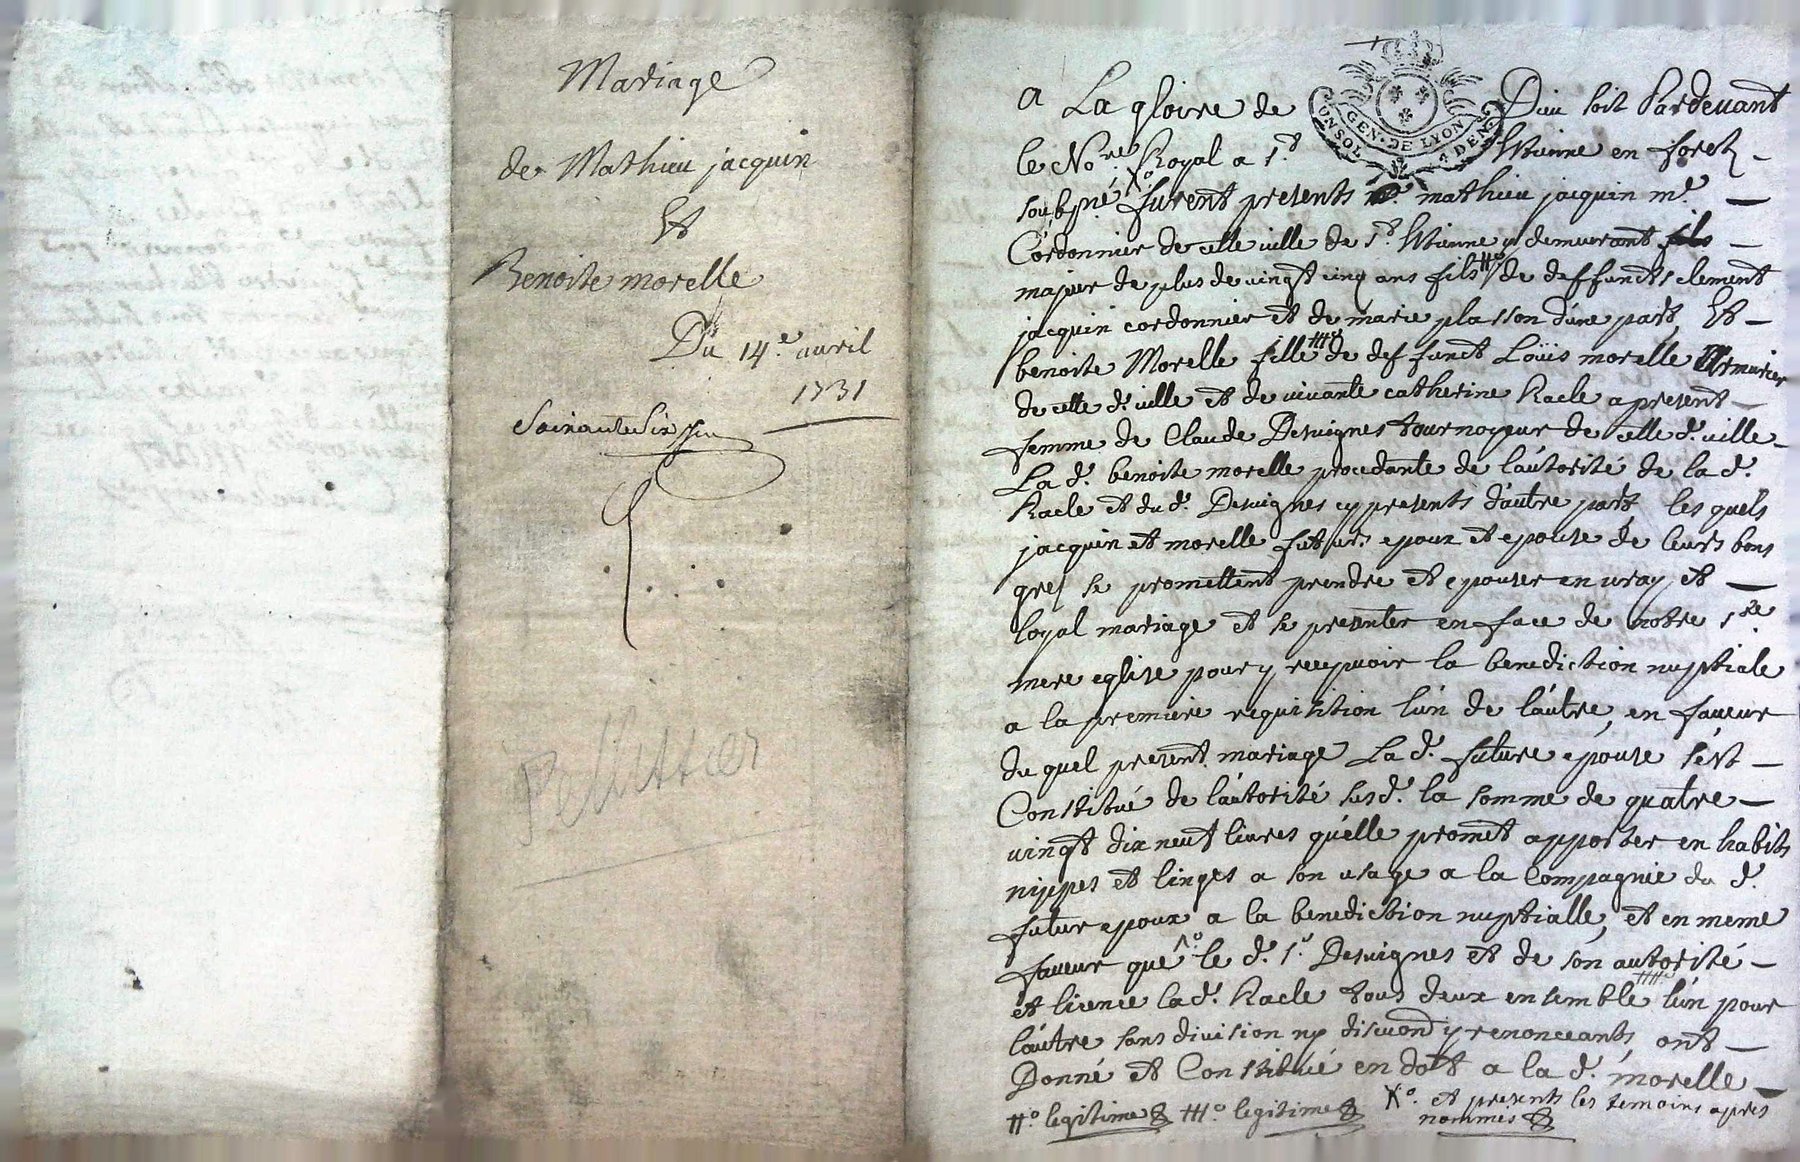 Mariage
de Mathieu jacquin
Et
Benoite morelle
Du 14.e avril
1731
Soixante Six
Pellitier
a La gloire de Dieu soit Pardevant
GEN. DE LYON
le No.re Royal a s.t Etienne en forest
soubsné X° furent presents mathieu jacquin m.e
Cordonnier de cette ville de s.t Etienne y demeurant fils
majeur de plus de vingt cinq ans fils #° de deffuncts clement
jacquin cordonnier et de marie plasson d'une part, Et
benoite Morelle fille ##° de deffunct Loüis morelle Armurier
de cette d. ville et de vivante catherine Racle a present
femme de Claude Desvignes tournoyeur de cette d. ville
La d. benoite morelle procedante de l'autorité de la d.
Racle et du d. Desvignes cy presents d'autre part les quels
jacquin et morelle futurs epoux et epouse de leurs bons
grés se promettent prendre et epouser en vray et
loyal mariage et se presenter en face de notre s.te
mere eglise pour y recepvoir la benediction nuptiale
a la premiere requisition l'un de l'autre, en faveur
du quel present mariage La d. future epouse s'est
Constitué de l'autorité susd. la somme de quatre
vingt dix neuf livres qu'elle promet apporter en habits
nippes et linges a son usage a la Compagnie du d.
futur epoux a la benediction nuptialle, et en meme
faveur que le d. s.r Desvignes et de son autorité
et licence la d. Racle tous deux ensemble l'un pour
l'autre sans division ny discuon y renonceants ont
Donné et Constitué en dot a la d. morelle
#° legitime ##° legitime X° et presents les temoins apres
nommés